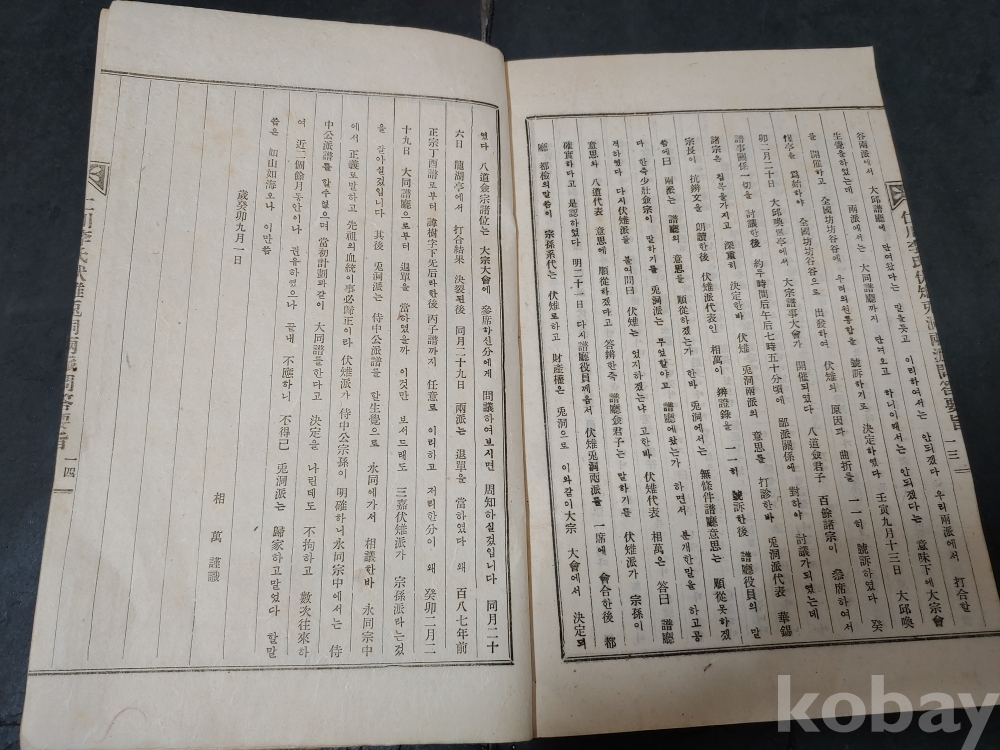 谷兩派에서 大邱譜廳에 단여왔다는 말을듯고 이리하여서는 안되겠다 우리兩派에서 打合할
生覺을하였는데 兩派에서는 大同譜廳까지 단여오고 하니이래서는 안되겠다는 意味下에大宗會
를 開催하고 全國坊坊谷谷에 우리의원통함을 號訴하기로 決定하였다 壬寅九月十三日 大邱喚
惺亭을 爲始하야 全國坊坊谷谷으로 出發하여 伏雉의 原因과 曲折를 一一히 號訴하였다 癸
卯二月二十日 大邱喚惺亭에서 大宗譜事大會가 開催되였다 八道僉君子 百餘諸宗이 參席하여서
譜事關係一切을 討議한後 約두時間后午后七時五十分頃에 鄙派關係에 對하야 討議가되였는데
諸宗은 침묵을가지고 深重히 決定한바 伏雉 兎洞兩派의 意思를 打診한바 兎洞派代表 華錫
宗長이 抗辨文을 朗讀한後 伏雉派代表인 相萬이 辨證錄을 一一히 號訴한後 譜廳役員의 말
씀에曰 兩派는 譜廳의 意思를 順從하겠는가 한바 兎洞에서는 無條件譜廳意思는 順從못하겠
다 한즉少壯僉宗이 말하기를 兎洞派는 무엇할야고 譜廳에왔는가 하면서 분개한말을 하고공
격하였다 다시伏雉派을 불여問曰 伏雉派는 엇지하겠는냐 고한바 伏雉代表 相萬은 答曰 譜廳
意思와 八道代表 意思에 順從하겠다고 答辨한즉 譜廳僉君子는 말하기를 伏雉派가 宗孫이
確實하다고 是認하였다 明二十一日 다시譜廳役員께옵서 伏雉兎洞兩派를 一席에 會合한後 都
廳 都檢의말씀이 宗孫系代는 伏雉로하고 財產權은 兎洞으로 이와같이大宗 大會에서 決定되
一三
였다 八道僉宗諸位는 大宗大會에 參席하신分에게 問議하여보시면 周知하실겄입니다 同月二十
六日 龍湖亭에서 打合結果 決裂된後 同月二十九日 兩派는 退單을 當하였다 왜 百八七年前
正宗丁酉譜로부터 諱樹字下先后라한後丙子譜까지 任意로 이리하고 저리한分이 왜 癸卯二月二
十九日 大同譜廳으로부터 退單을 當하였을까 이것만 보서드래도 三嘉伏雉派가 宗孫派라는겄
을 갈아실겄입니다 其後 兎洞派는 侍中公派譜을 할生覺으로 永同에가서 相議한바 永同宗中
에서 正義로말하고 先祖의血統이事必歸正이라 伏雉派가 侍中公宗孫이 明確하니永同宗中에서는 侍
中公派譜를 할수없으며 當初計劃과같이 大同譜을한다고 決定을 나린데도 不拘하고 數次往來하
여 近二個餘月동안이나 권유하였으나 끝내 不應하니 不得已 兎洞派는 歸家하고말았다 할말
씀은 如山如海오나 이만씀
歲癸卯九月一日
相萬 謹識
一四
kobay